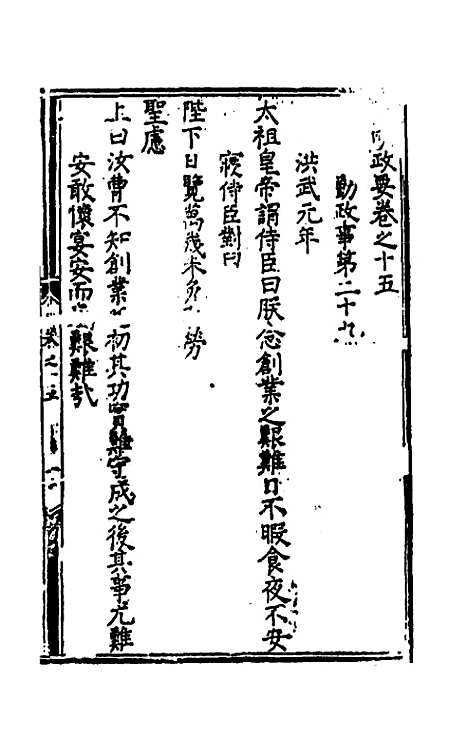 政要卷之十五
勤政事第二十九
洪武元年
太祖皇帝謂侍臣曰朕念創業之艱難日不暇食夜不安
寢侍臣對曰
陛下日覽萬幾未免 勞
聖慮
上曰汝曹不知創業之初其功實難守成之後其事尤難
安敢懷宴安而忘艱難哉
卷之十五